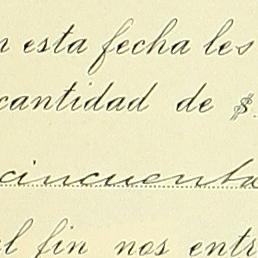 n esta fecha les
cantidad de $
cincuenta
al fin nos entr